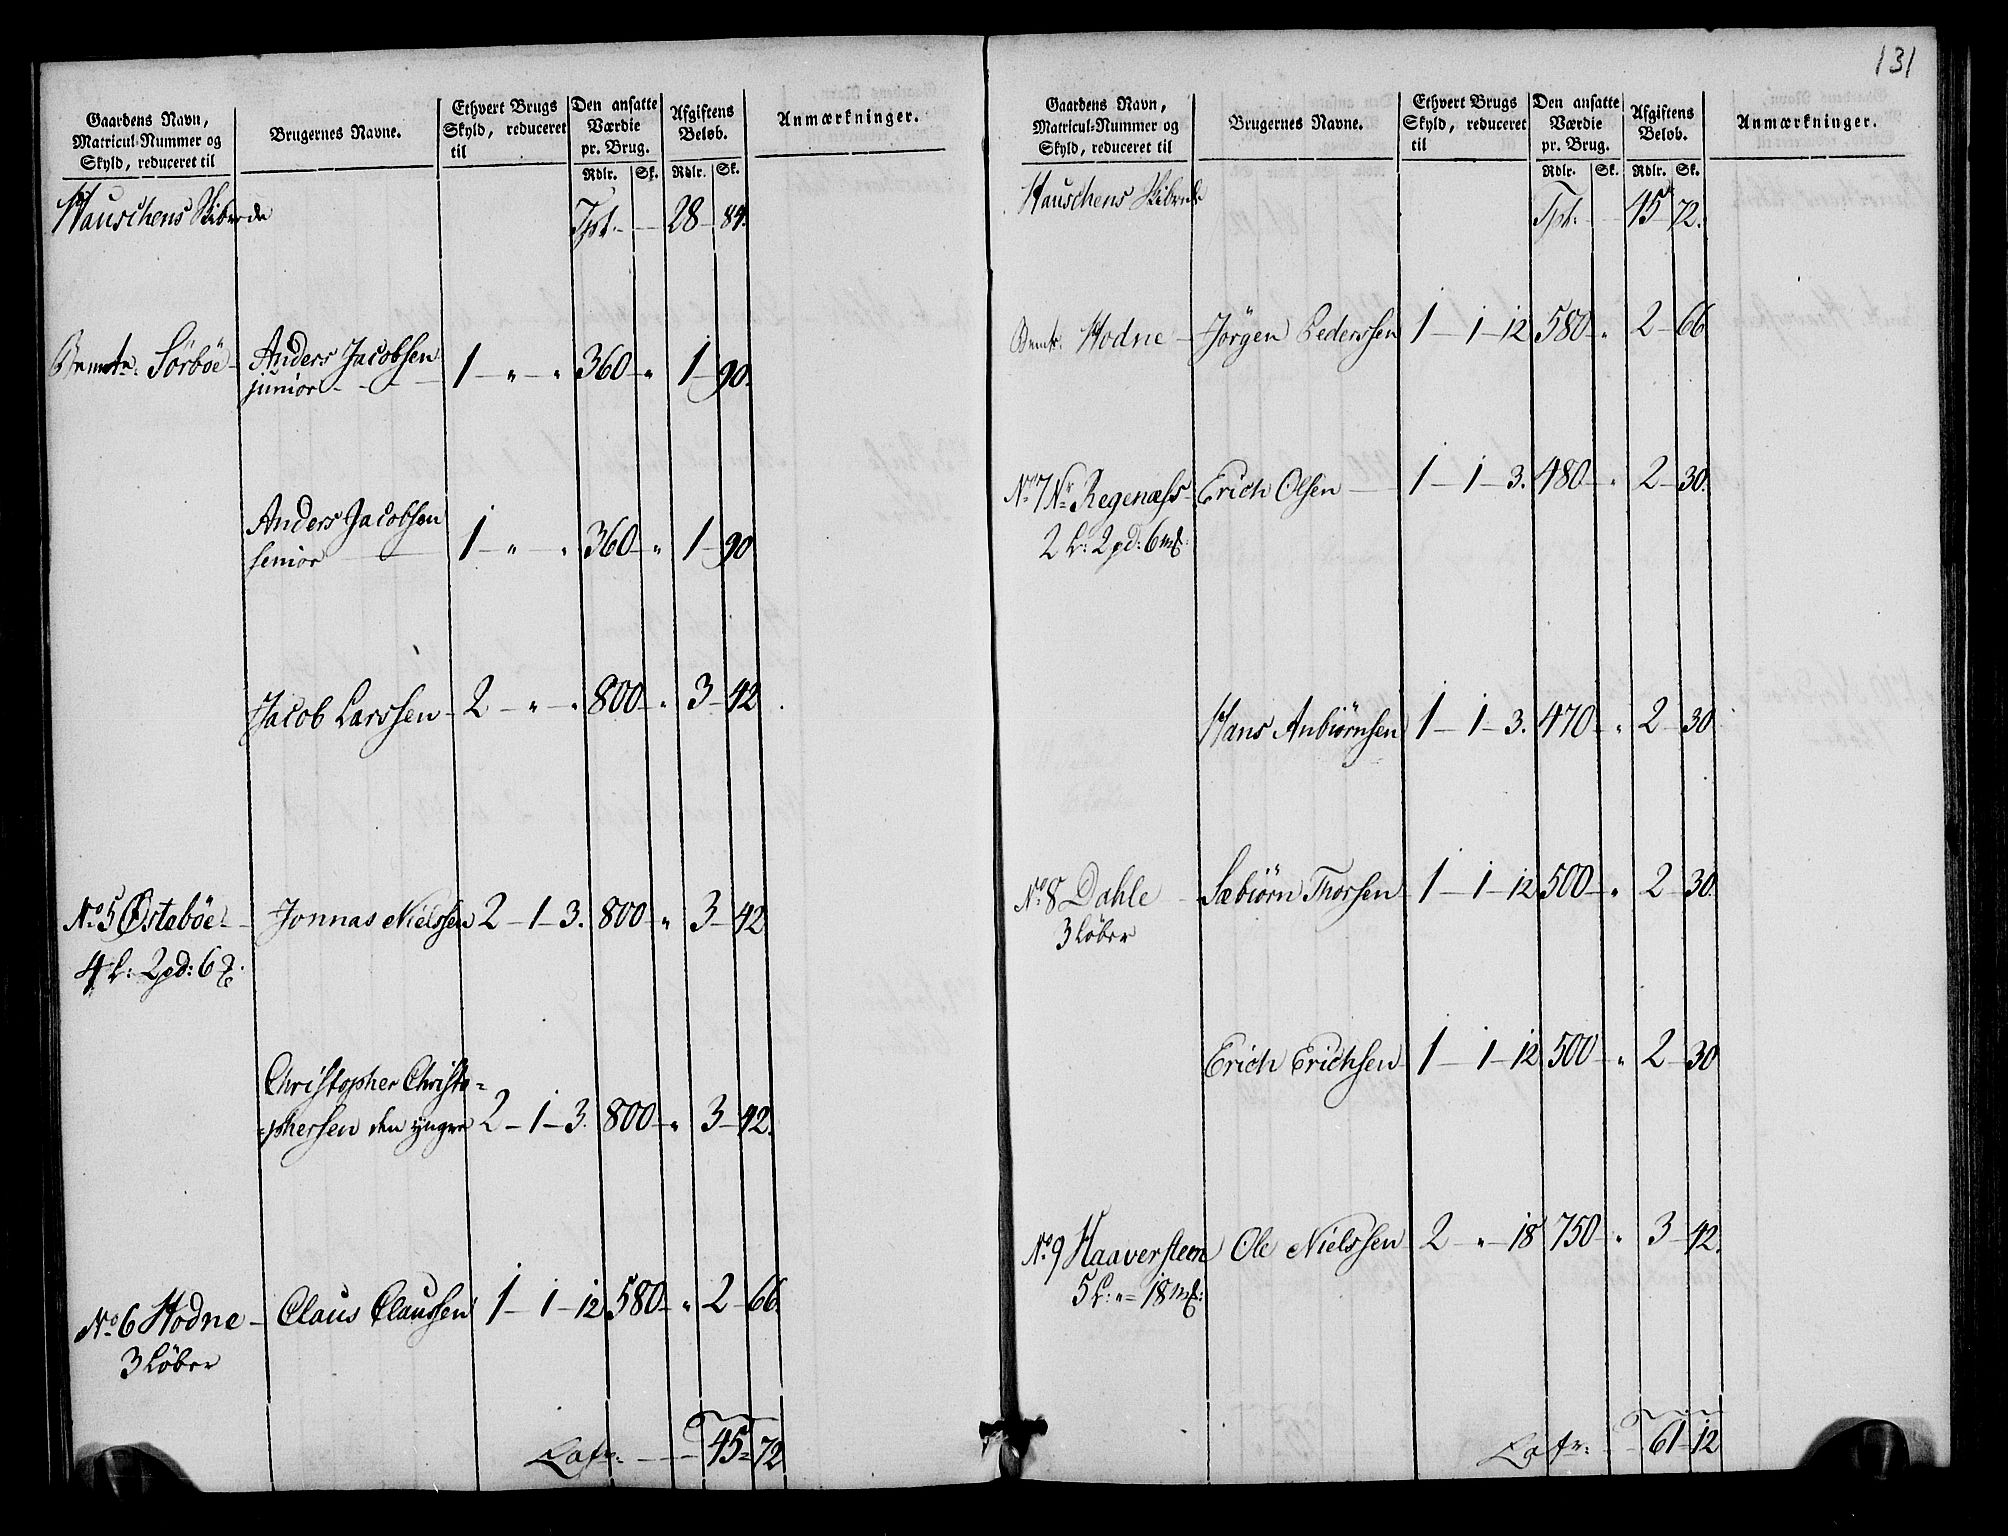 Gaardens Navn,
Matricul-Nummer og
Skyld, reduceret til
Brugernes Navne.
Ethvert Brugs
Skyld, reduceret
til
Den ansatte
Værdie
pr. Brug.
Rdlr. Sk.
Afgiftens
Beløb.
Rdlr. Sk.
Anmærkninger.
Hauschens Skibrede Tpt. 28 84.
Bemte. Sörböe Anders Jacobsen
junior 1 " " 360 " 1 90.
Anders Jacobsen
senior 1 " " 360 " 1 90
Jacob Larssen 2 " " 800 " 3 42
No. 5 Østebøe Jonnas Nielssen 2 1 3. 800 " 3 42
4 L: 2 pd: 6
Christopher Christo=
=phersen den yngre 2 1 3. 800 " 3 42.
No. 6 Hodne Claus Claussen 1 1 12 580 " 2 66.
3 Löber
Lafr. 45 72
131
Gaardens Navn,
Matricul-Nummer og
Skyld, reduceret til
Brugernes Navne.
Ethvert Brugs
Skyld, reduceret
til
Den ansatte
Værdie
pr. Brug.
Rdlr. Sk.
Afgiftens
Beløb.
Rdlr. Sk.
Anmærkninger.
Hauschens Skibrede Tpt. 45 72.
Bemte. Hodne Jörgen Pederssen 1 1 12 580 " 2 66
No. 7 Nr. Regenæss Erich Olsen 1 1 3. 480 " 2 30.
2 L: 2 pd: 6 mk:
Hans Anbiørnsen 1 1 3. 470 " 2 30
No. 8 Dahle Sæbiörn Thorsen 1 1 12 500 " 2 30.
3 Löber
Erich Erichsen 1 1 12 500 " 2 30
No. 9 Haaversteen Ole Nielssen 2 " 18 750 " 3 42.
5 L: " 18 mk:
Lafr: 61 12